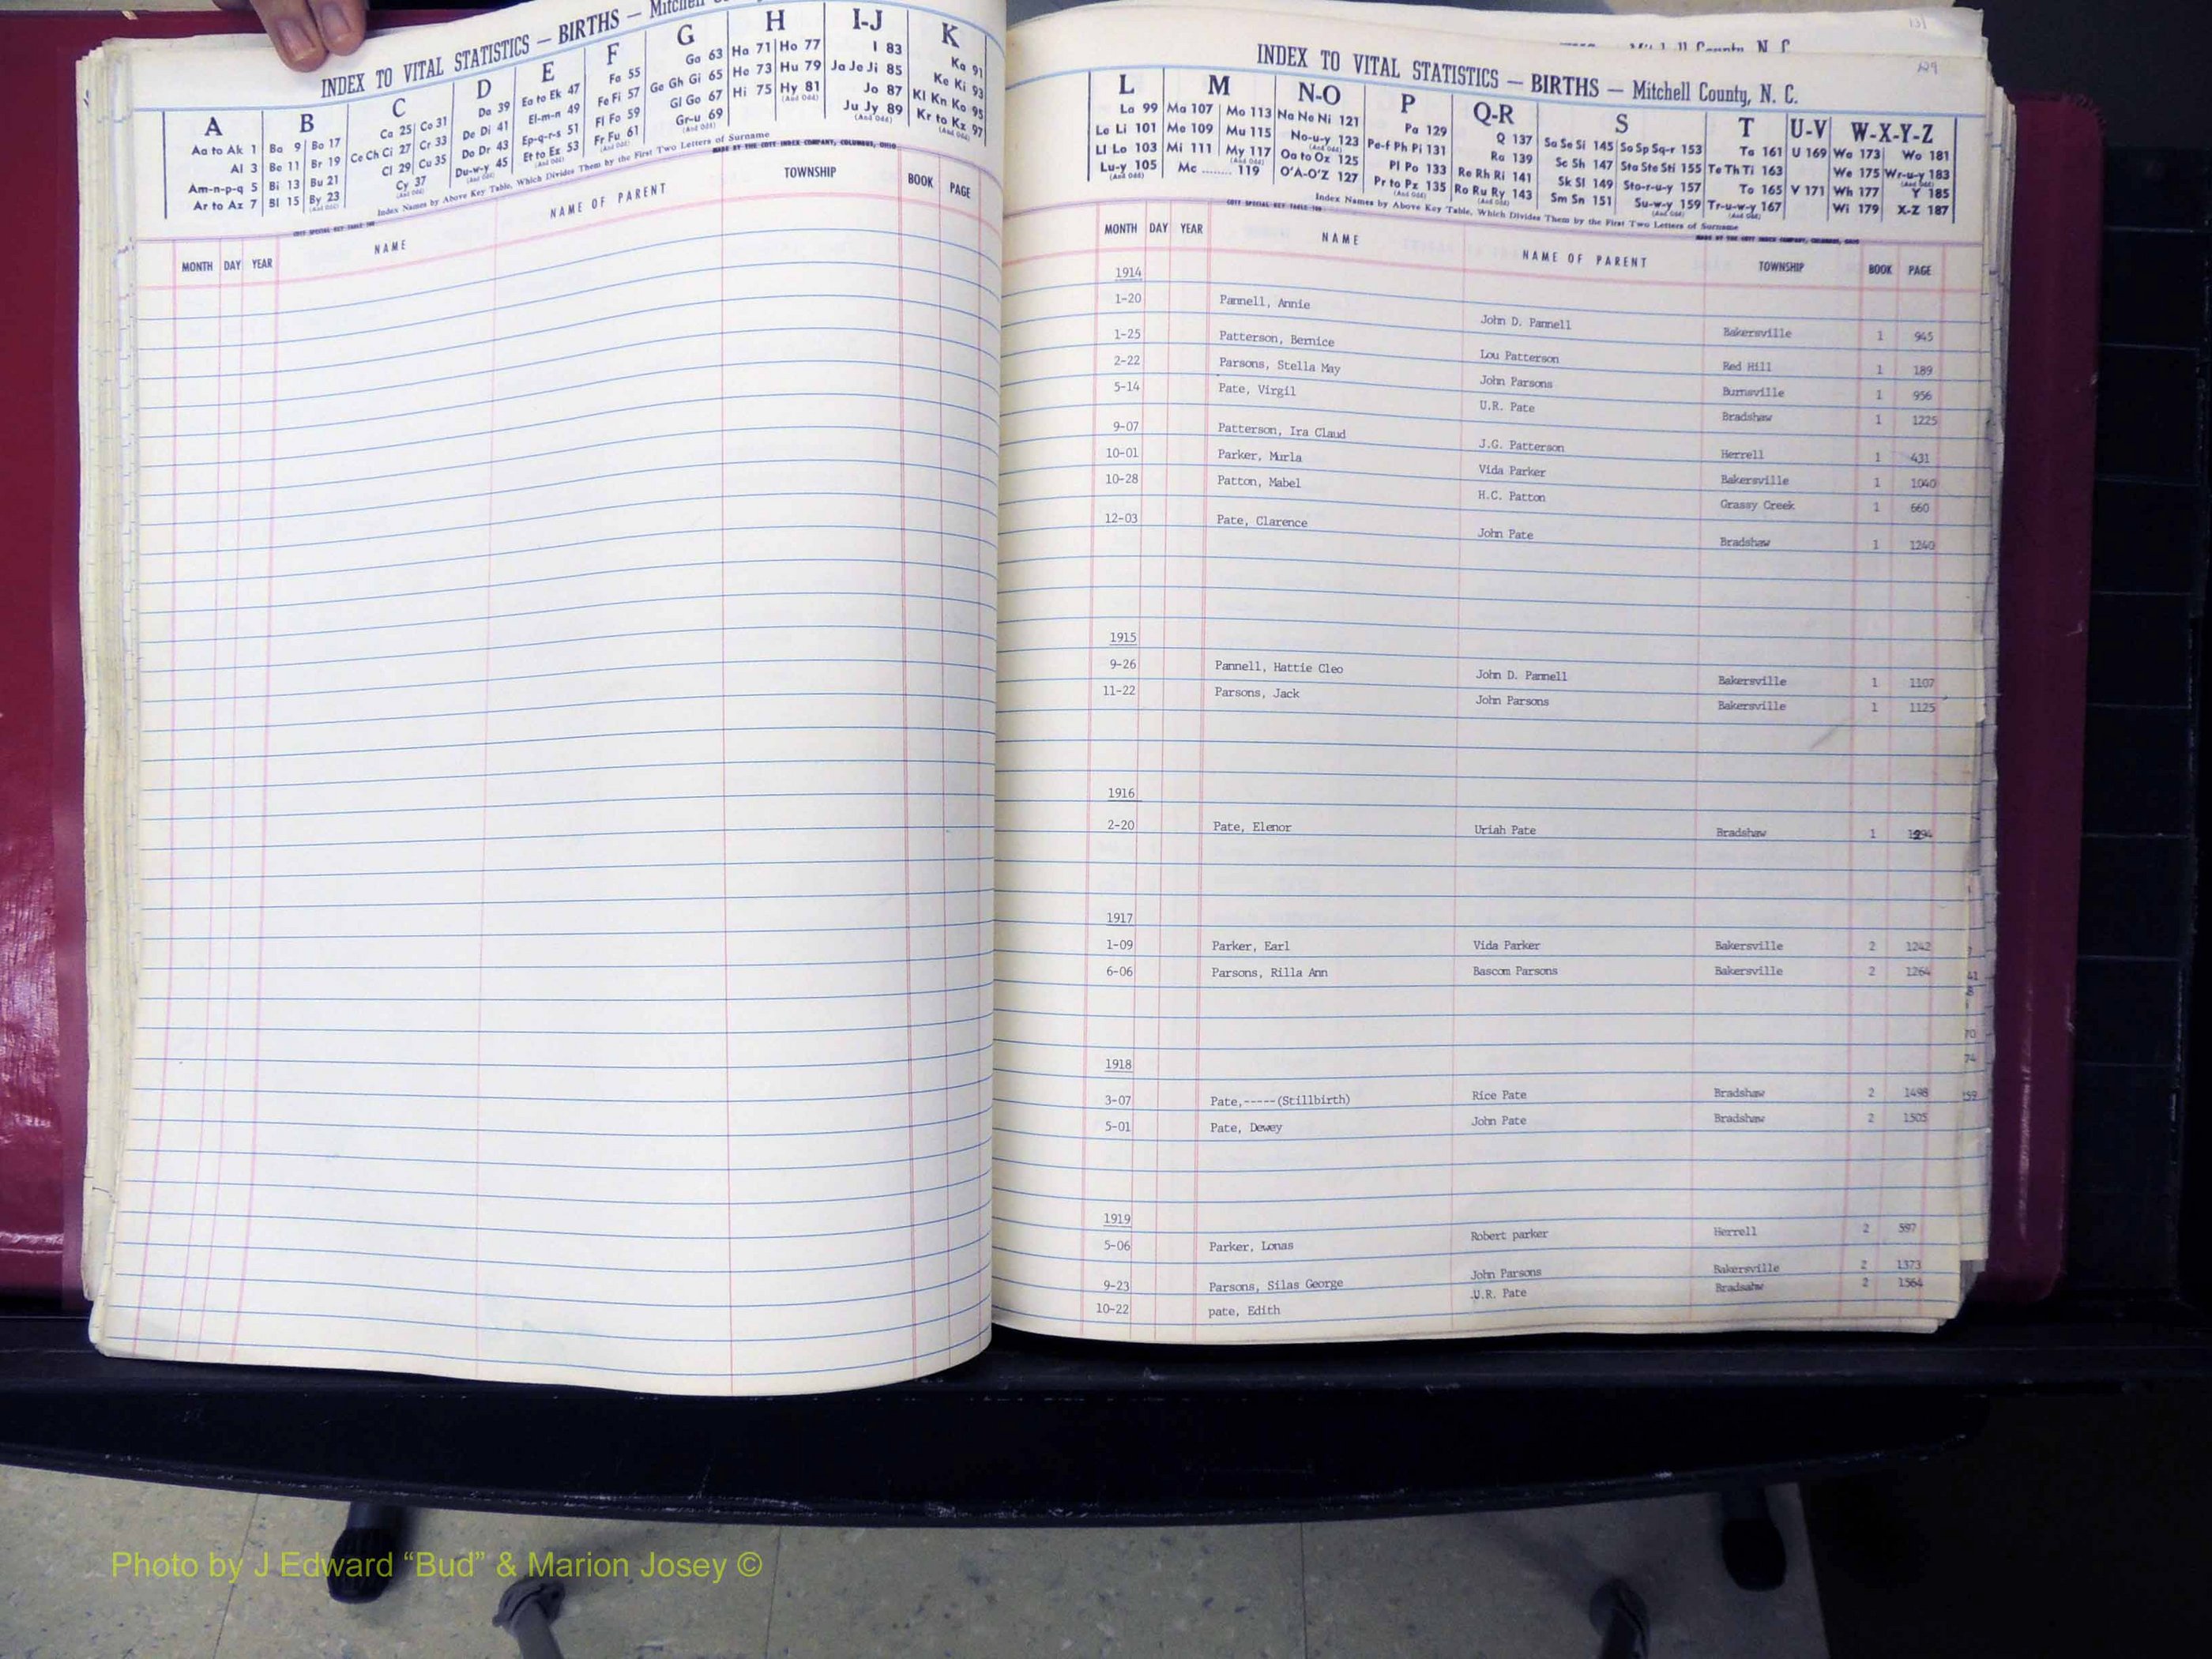 INDEX TO VITAL STATISTICS — BIRTHS — Mitchell
A B C D E F G H I-J K
Aa to Ak 1 Ba 9 Bo 17 Ca 25 Co 31 Da 39 Ea to Ek 47 Fa 55 Ga 63 Ha 71 Ho 77 I 83 Ka 91
Al 3 Be 11 Br 19 Ce Ch Ci 27 Cr 33 De Di 41 El-m-n 49 Fe Fi 57 Ge Gh Gi 65 He 73 Hu 79 Ja Je Ji 85 Ke Ki 93
Am-n-p-q 5 Bi 13 Bu 21 Cl 29 Cu 35 Do Dr 43 Ep-q-r-s 51 Fl Fo 59 Gl Go 67 Hi 75 Hy 81 Jo 87 Kl Kn Ko 95
Ar to Az 7 Bl 15 By 23 Cy 37 Du-w-y 45 Et to Ez 53 Fr Fu 61 Gr-u 69 Ju Jy 89 Kr to Kz 97
(And Odd) (And Odd) (And Odd) (And Odd) (And Odd) (And Odd) (And Odd) (And Odd) (And Odd) (And Odd)
Index Names by Above Key Table, Which Divides Them by the First Two Letters of Surname
COTT SPECIAL KEY TABLE MADE BY THE COTT INDEX COMPANY, COLUMBUS, OHIO
MONTH DAY YEAR NAME NAME OF PARENT TOWNSHIP BOOK PAGE
Mitchell County, N. C.
129
INDEX TO VITAL STATISTICS — BIRTHS — Mitchell County, N. C.
L M N-O P Q-R S T U-V W-X-Y-Z
La 99 Ma 107 Mo 113 Na Ne Ni 121 Pa 129 Q 137 Sa Se Si 145 So Sp Sq-r 153 Ta 161 U 169 Wa 173 Wo 181
Le Li 101 Me 109 Mu 115 No-u-y 123 Pe-f Ph Pi 131 Ra 139 Sc Sh 147 Sta Ste Sti 155 Te Th Ti 163 We 175 Wr-u-y 183
Ll Lo 103 Mi 111 My 117 Oa to Oz 125 Pl Po 133 Re Rh Ri 141 Sk Sl 149 Sto-r-u-y 157 To 165 V 171 Wh 177 Y 185
Lu-y 105 Mc ........ 119 O'A-O'Z 127 Pr to Pz 135 Ro Ru Ry 143 Sm Sn 151 Su-w-y 159 Tr-u-w-y 167 Wi 179 X-Z 187
(And Odd) (And Odd) (And Odd) (And Odd) (And Odd) (And Odd) (And Odd) (And Odd)
Index Names by Above Key Table, Which Divides Them by the First Two Letters of Surname
COTT SPECIAL KEY TABLE MADE BY THE COTT INDEX COMPANY, COLUMBUS, OHIO
MONTH DAY YEAR NAME NAME OF PARENT TOWNSHIP BOOK PAGE
1914
1-20 Pannell, Annie John D. Pannell Bakersville 1 945
1-25 Patterson, Bernice Lou Patterson Red Hill 1 189
2-22 Parsons, Stella May John Parsons Burnsville 1 956
5-14 Pate, Virgil U.R. Pate Bradshaw 1 1225
9-07 Patterson, Ira Claud J.G. Patterson Herrell 1 431
10-01 Parker, Murla Vida Parker Bakersville 1 1040
10-28 Patton, Mabel H.C. Patton Grassy Creek 1 660
12-03 Pate, Clarence John Pate Bradshaw 1 1240
1915
9-26 Pannell, Hattie Cleo John D. Pannell Bakersville 1 1107
11-22 Parsons, Jack John Parsons Bakersville 1 1125
1916
2-20 Pate, Elenor Uriah Pate Bradshaw 1 1294
1917
1-09 Parker, Earl Vida Parker Bakersville 2 1242
6-06 Parsons, Rilla Ann Bascom Parsons Bakersville 2 1264
41
70
74
1918
3-07 Pate,-----(Stillbirth) Rice Pate Bradshaw 2 1498
159
5-01 Pate, Dewey John Pate Bradshaw 2 1505
1919
5-06 Parker, Lonas Robert parker Herrell 2 597
9-23 Parsons, Silas George John Parsons Bakersville 2 1373
10-22 pate, Edith .U.R. Pate Bradsahw 2 1564
Photo by J Edward “Bud” & Marion Josey ©